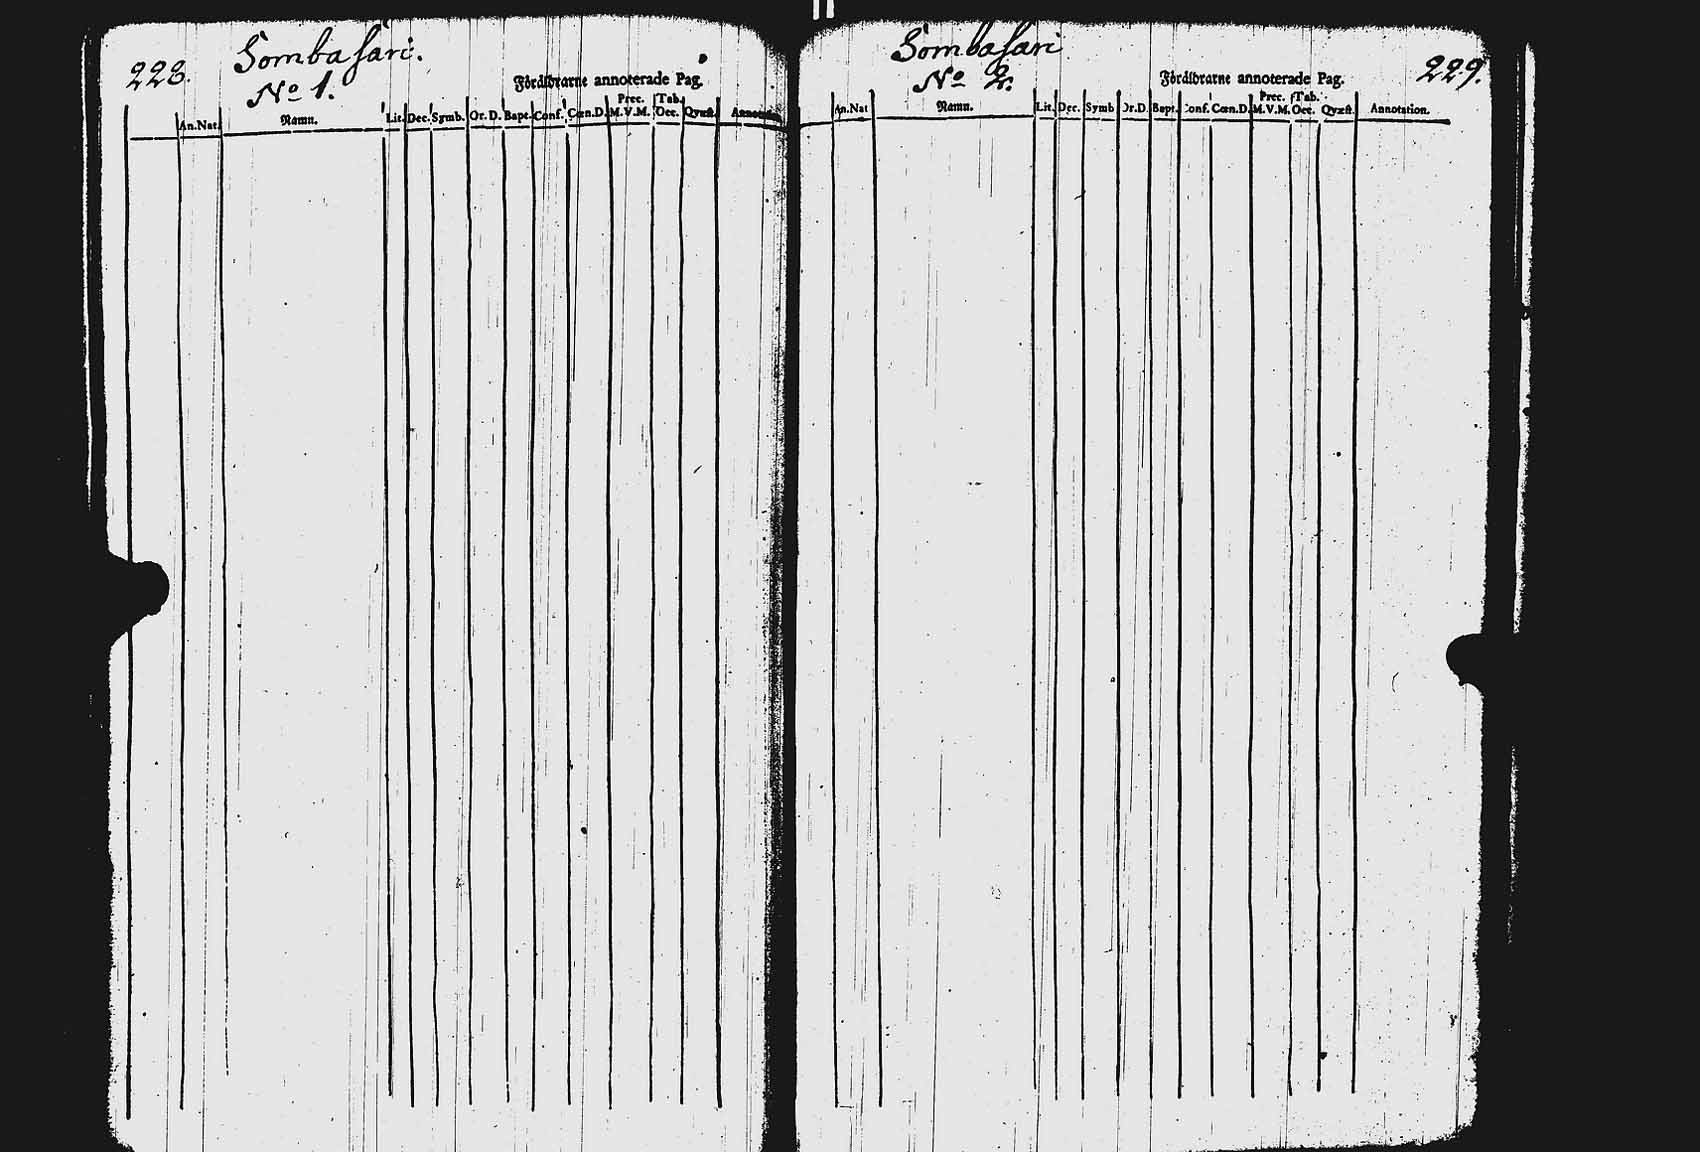 228.
Sombasari.
No 1.
Föräldrarne annoterade Pag.
An.Nat. Namn. Lit. Dec. Symb. Or.D. Bapt. Conf. Cœn.D. Prec. M.V.M. Tab. Oec. Qvæst. Annotation.
Sombasari
No 2.
229.
Föräldrarne annoterade Pag.
An.Nat Namn. Lit. Dec. Symb Or.D. Bapt. Conf. Cœn.D. Prec. M.V.M. Tab. Oec. Qvæst. Annotation.